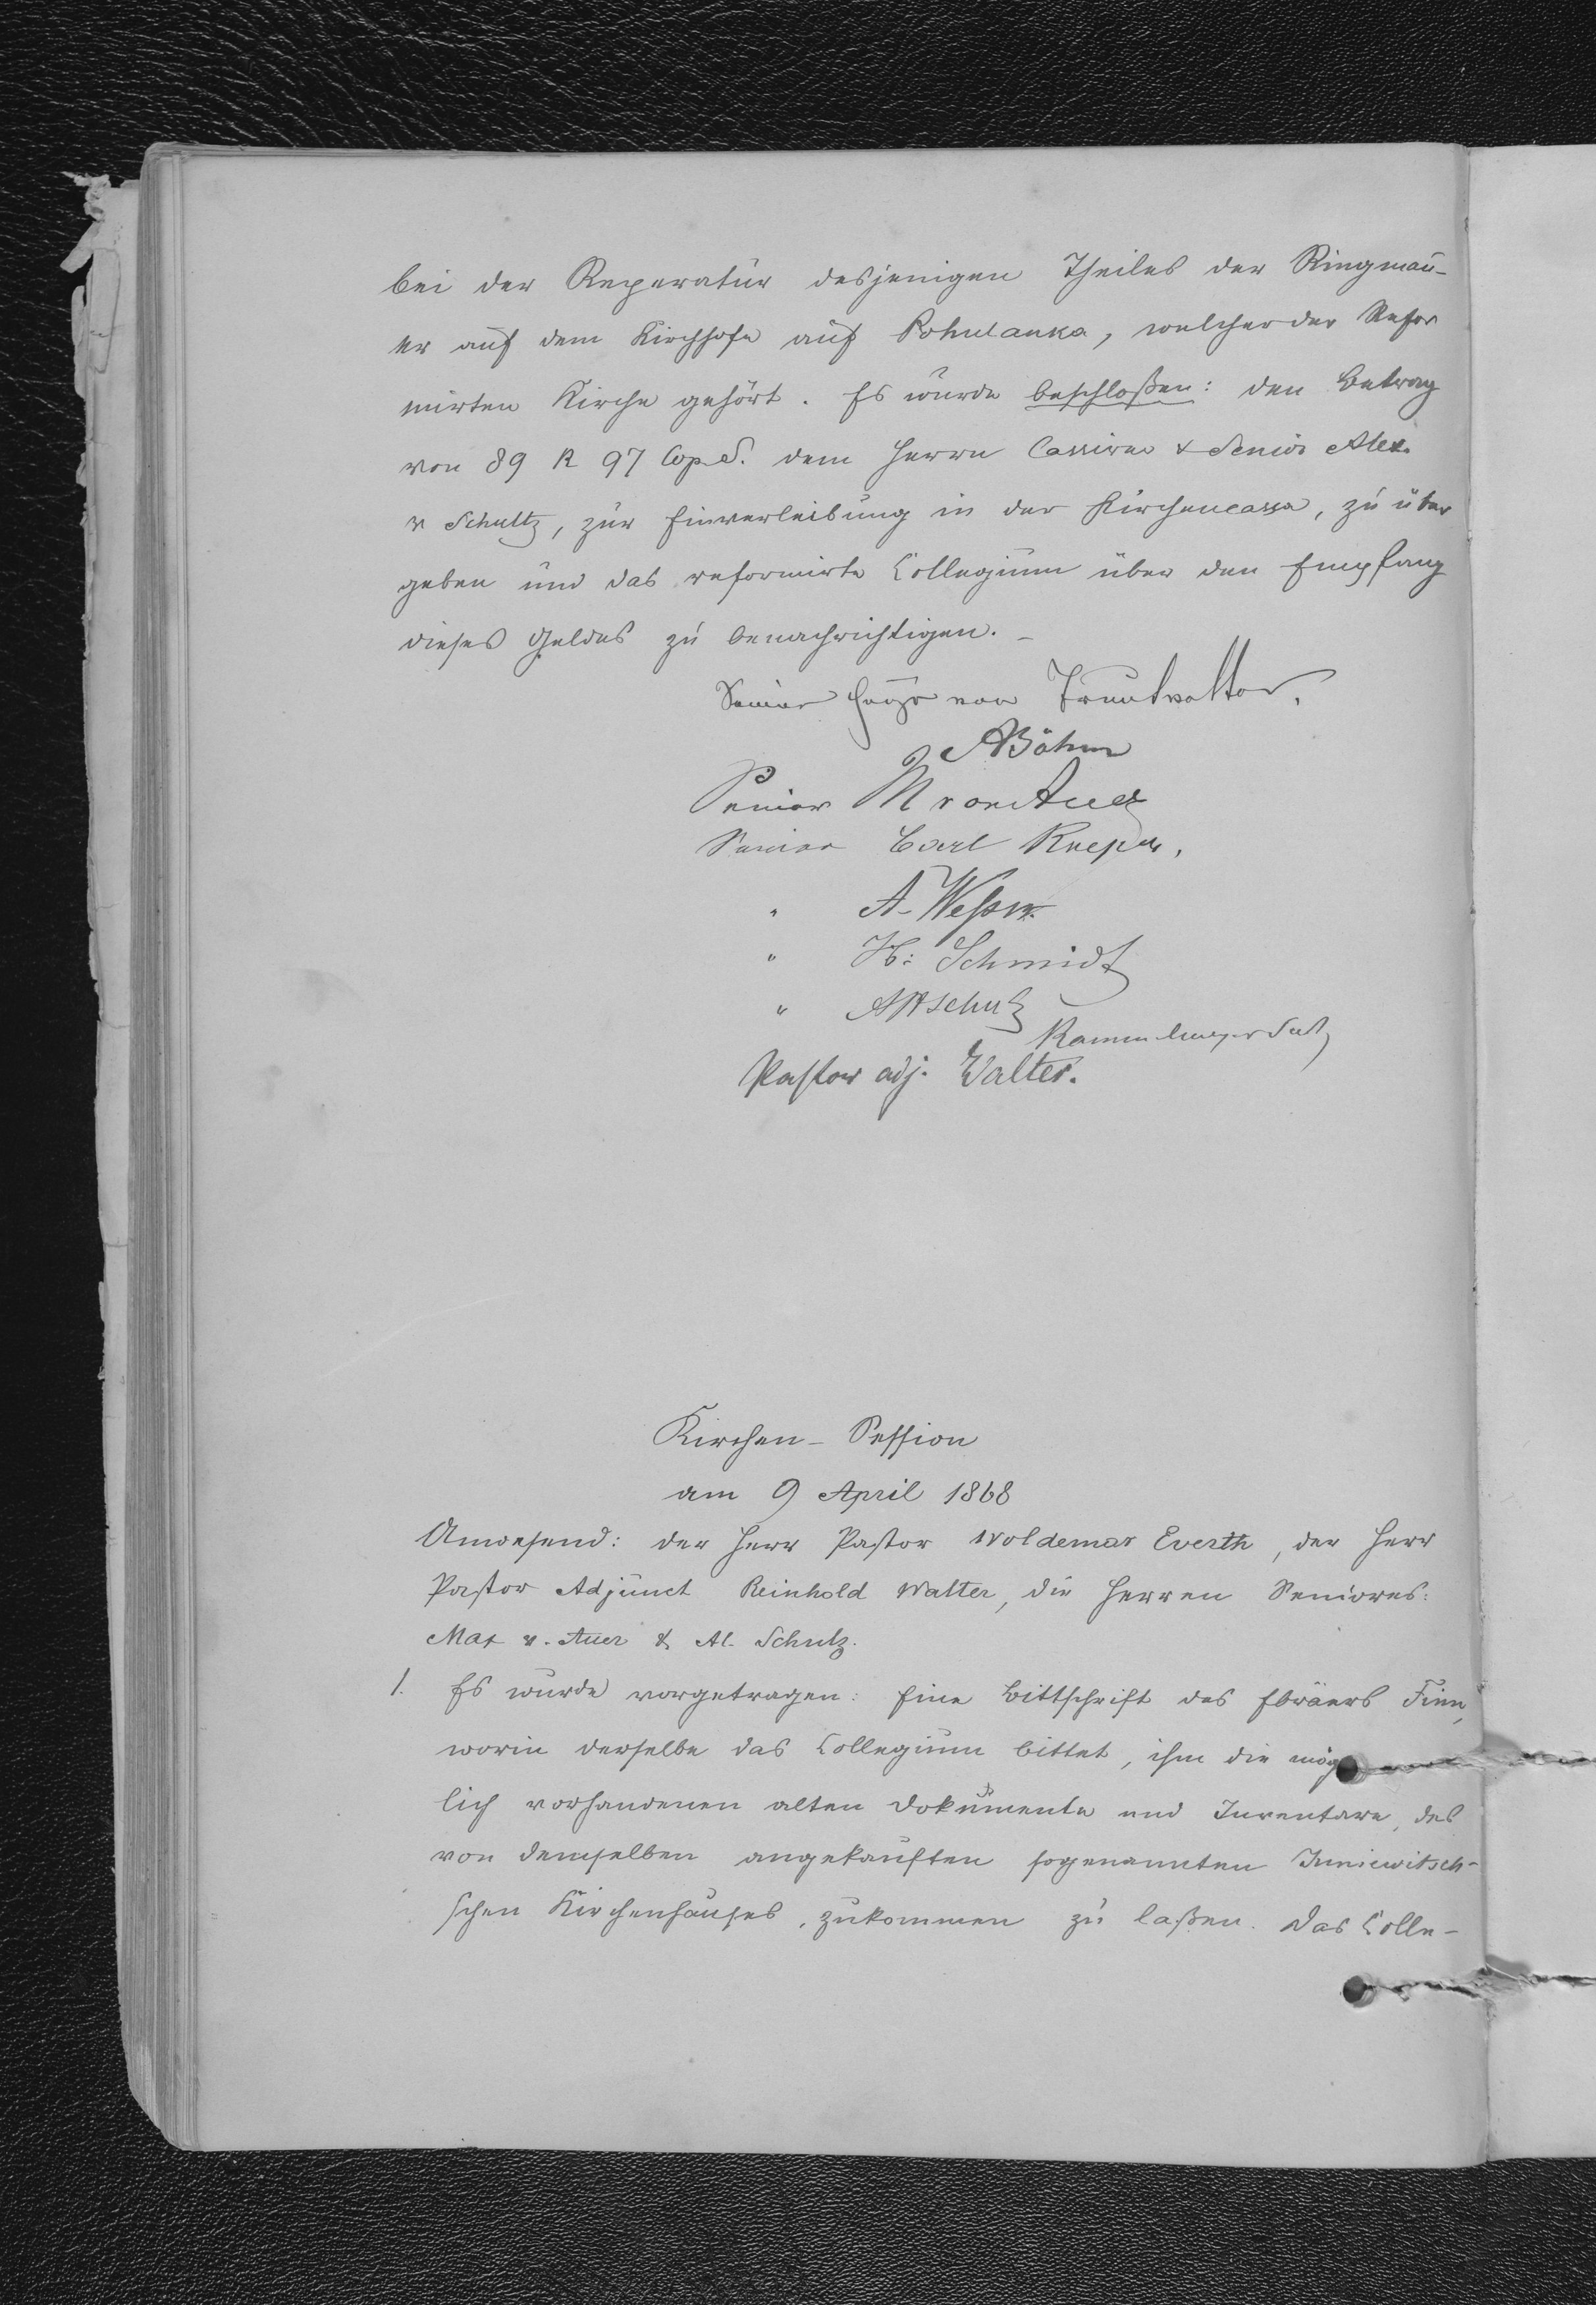 bei der Reperatur desjenigen Theiles der Ringmau-
er auf dem Kirchhofe auf Pohulanka, welcher der Refor
mirten Kirche gehört. Es wurde beschloßen: den Betrag
von 89 R 97 Cop S. dem Herrn Cassirer & Senior Alex.
v Schultz, zur Einverleibung in der Kirchencassa, zu über
geben und das reformirte Collegium über den Empfang
dieses Geldes zu benachrichtigen. –
Senior von Trautvetter.
ABöhm
Senior M von Auer
Senior Carl
" A.
" H: Schmidt
" ASchulz
Pastor adj. Walter.
Kirchen-Session
am 9 April 1868
Anwesend: der Herr Pastor Woldemar Everth, der Herr
Pastor Adjunct Reinhold Walter, die Herren Seniores:
Max v. Auer & Al. Schulz.
1. Es wurde vorgetragen: Eine Bittschrift des Ebräers Finn,
worin derselbe das Collegium bittet, ihm die mög
lich vorhandenen alten Dokumente und Inventare, des
von demselben angekauften sogenannten Juniewitsch-
schen Kirchenhauses, zukommen zu laßen. Das Colle-